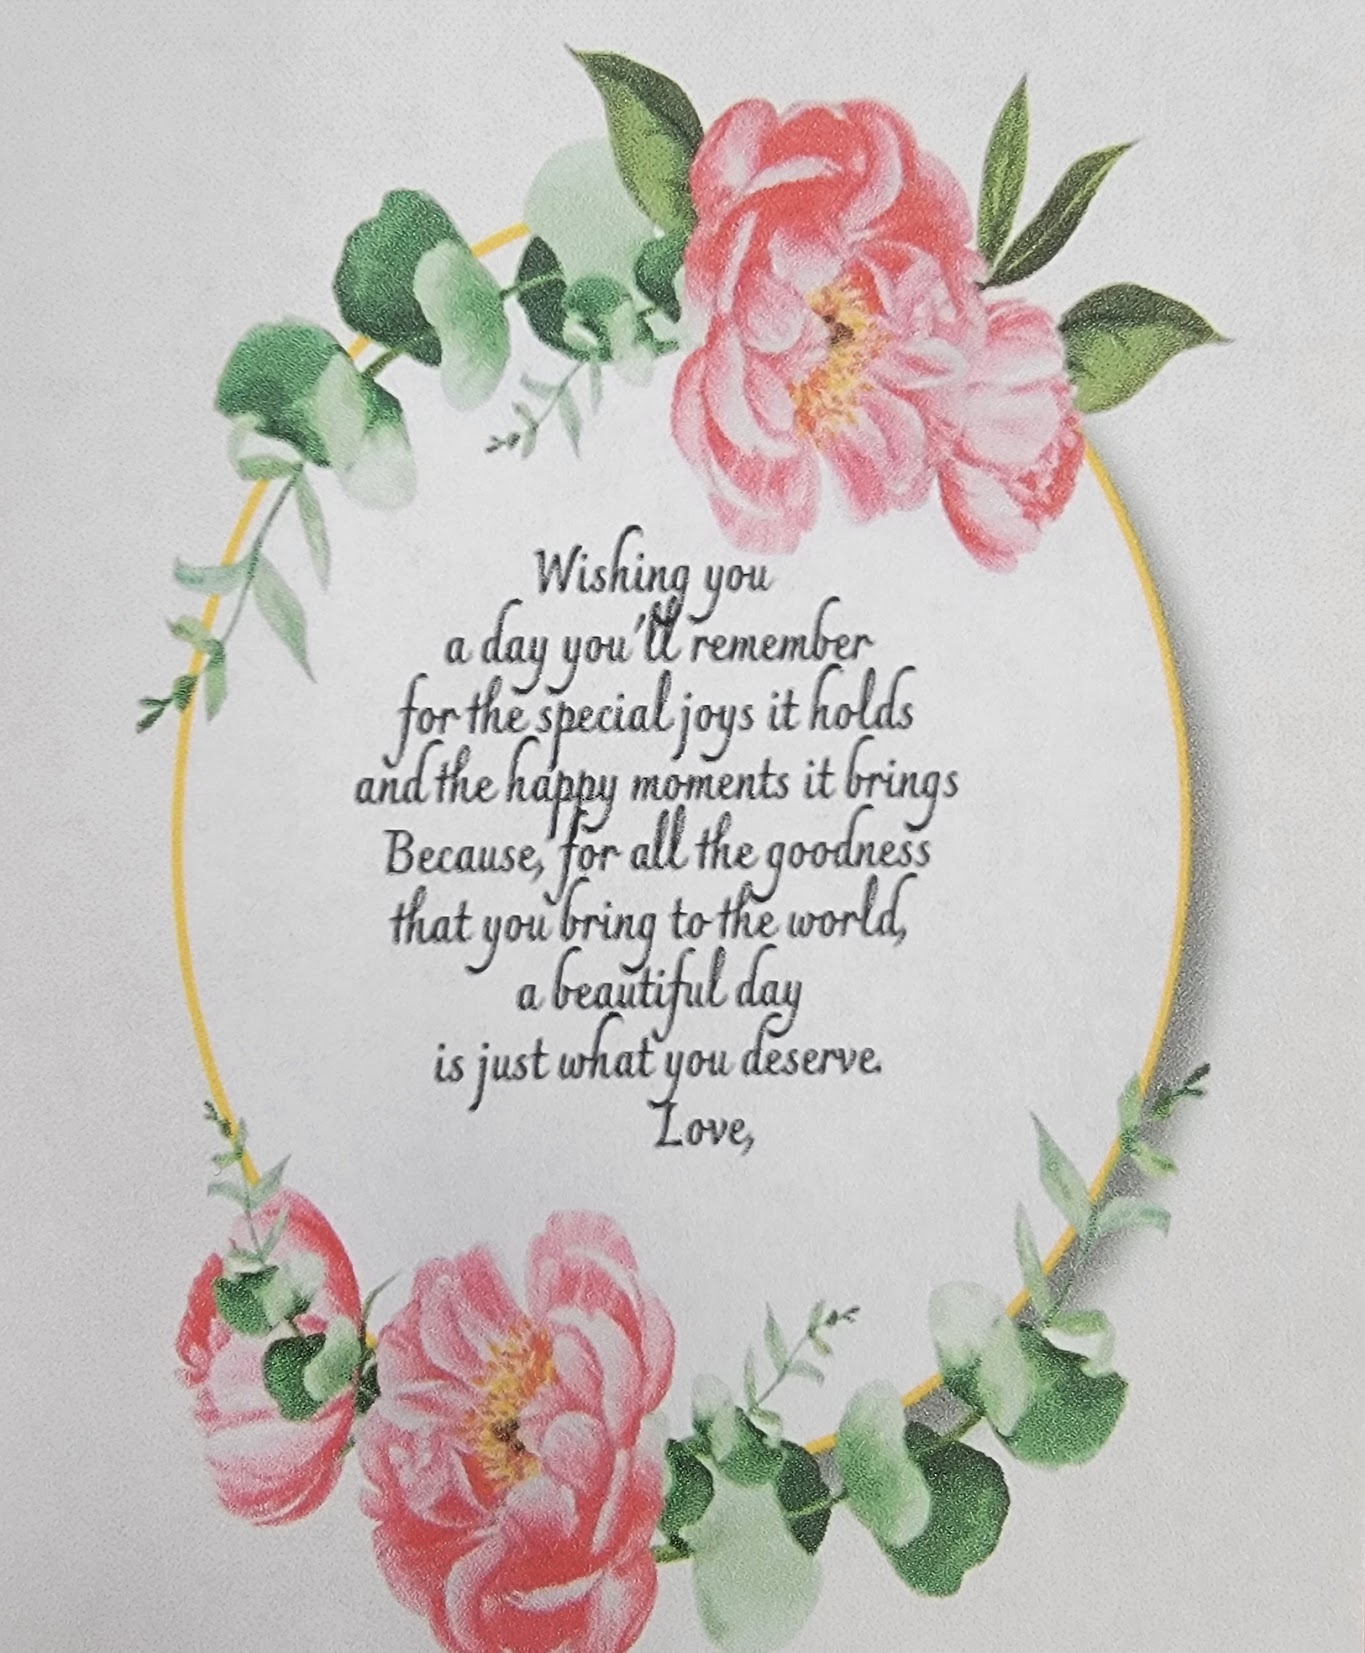 Wishing you
a day you'll remember
for the special joys it holds
and the happy moments it brings
Because, for all the goodness
that you bring to the world,
a beautiful day
is just what you deserve.
Love,